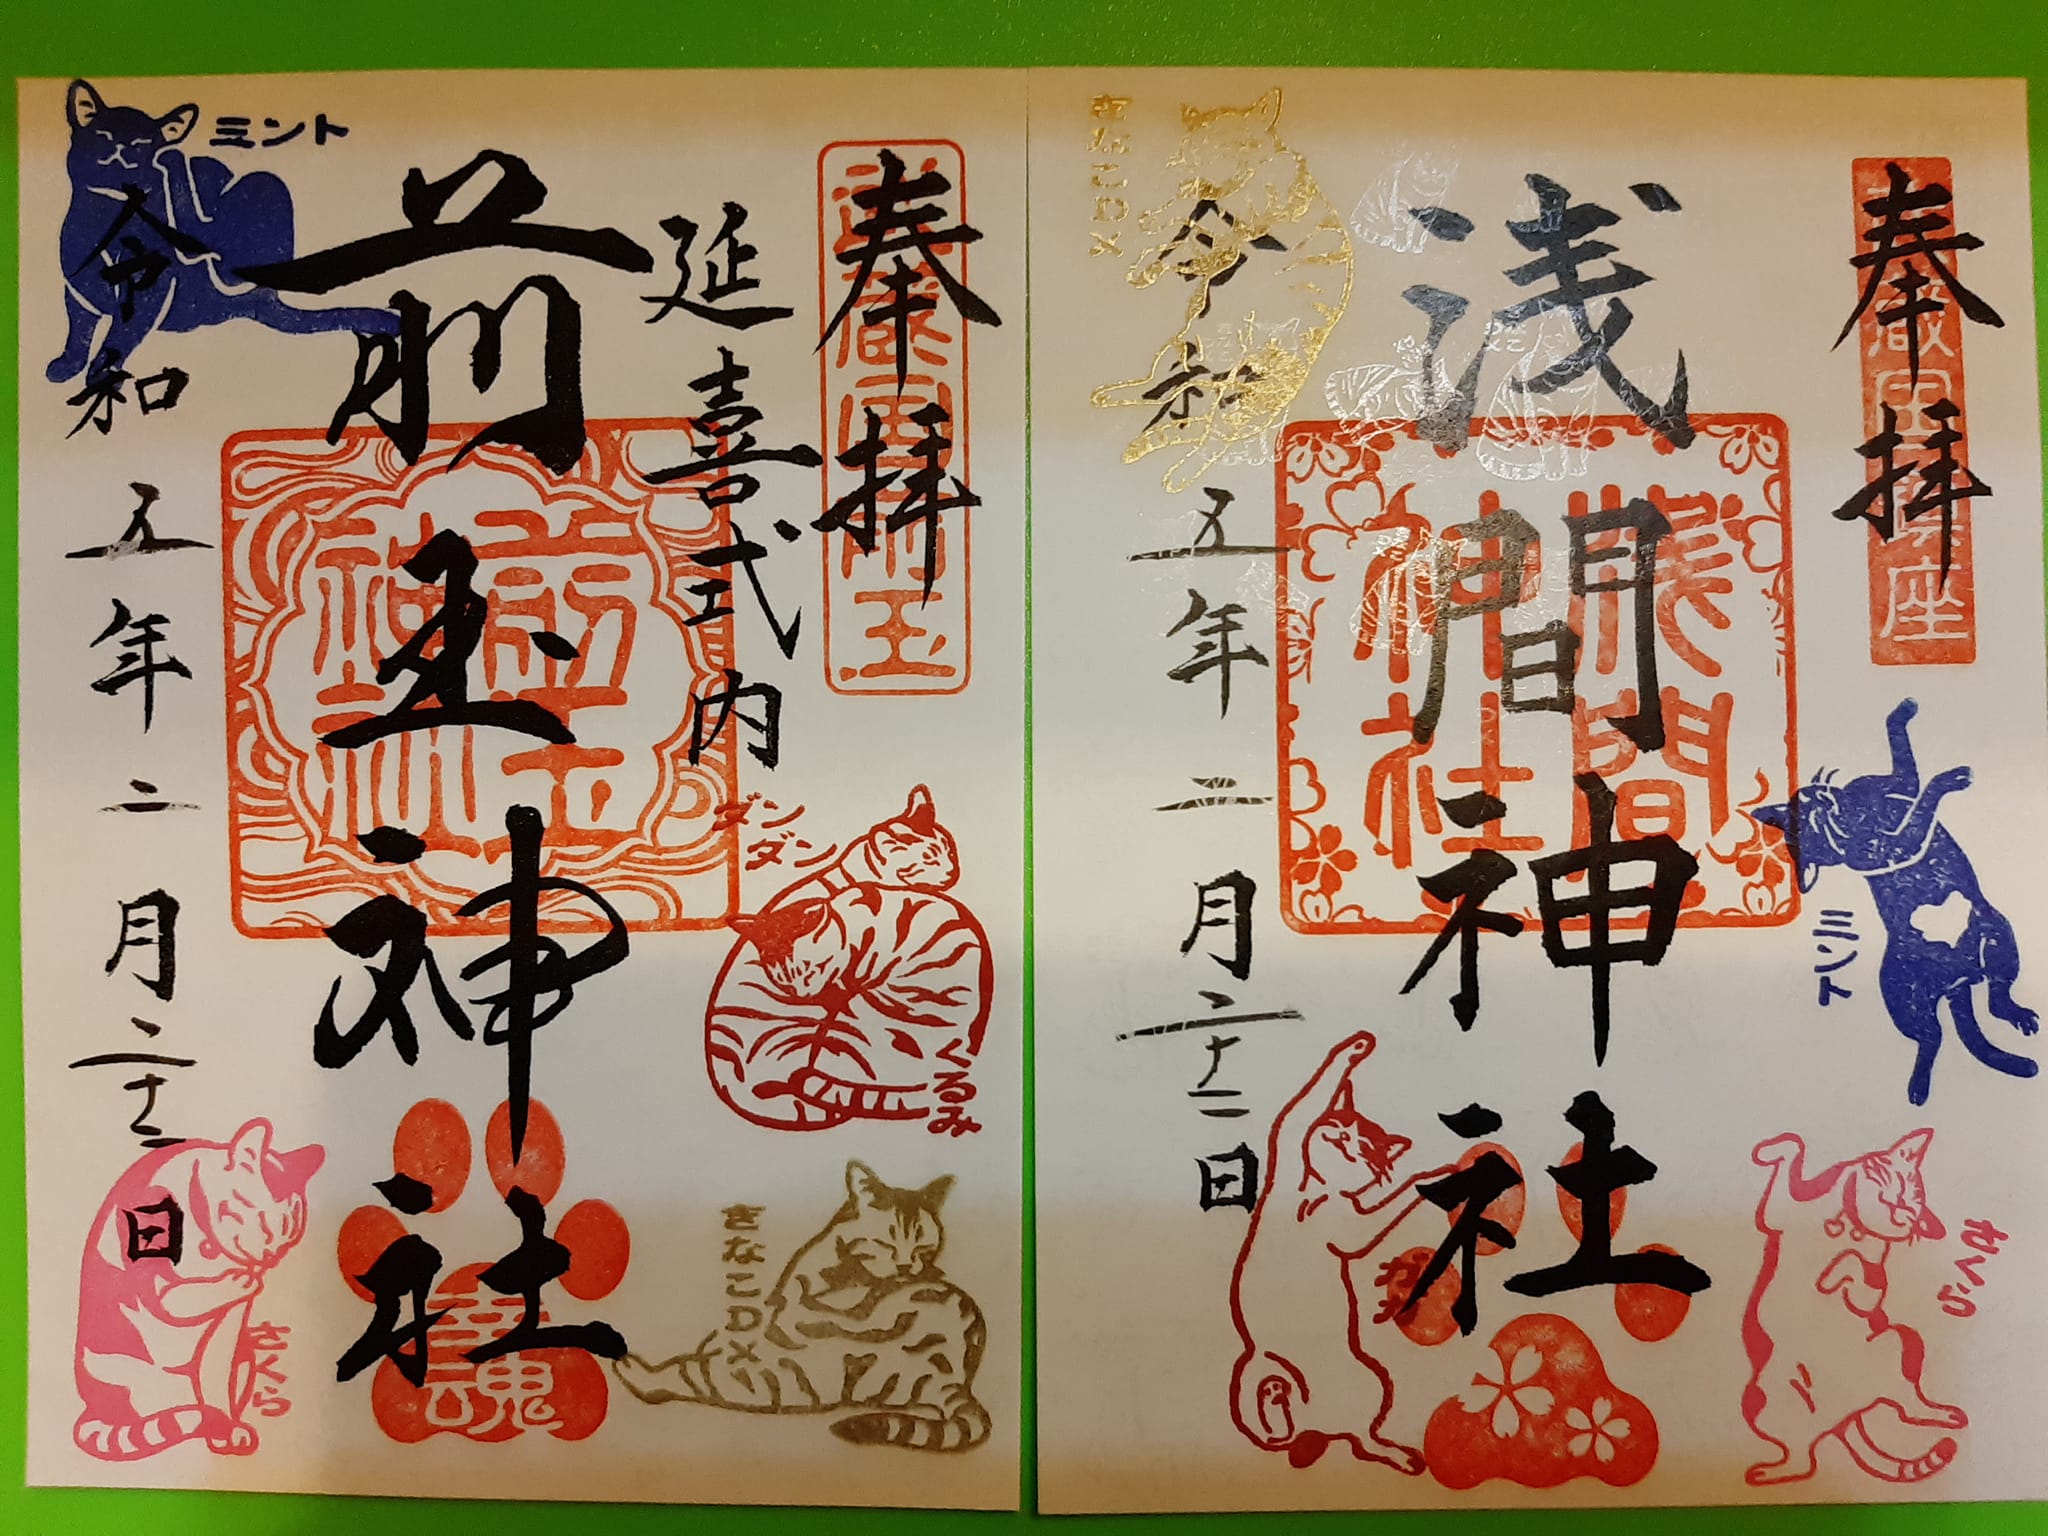 奉拝
延喜式内
前玉神社
令和五年二月二十二日
前玉神社
ミント
ダンダン
くるみ
きなこDX
さくら
魂
奉拝
浅間神社
令和五年二月二十二日
浅間神社
きなこDX
ミント
さくら
ガガ